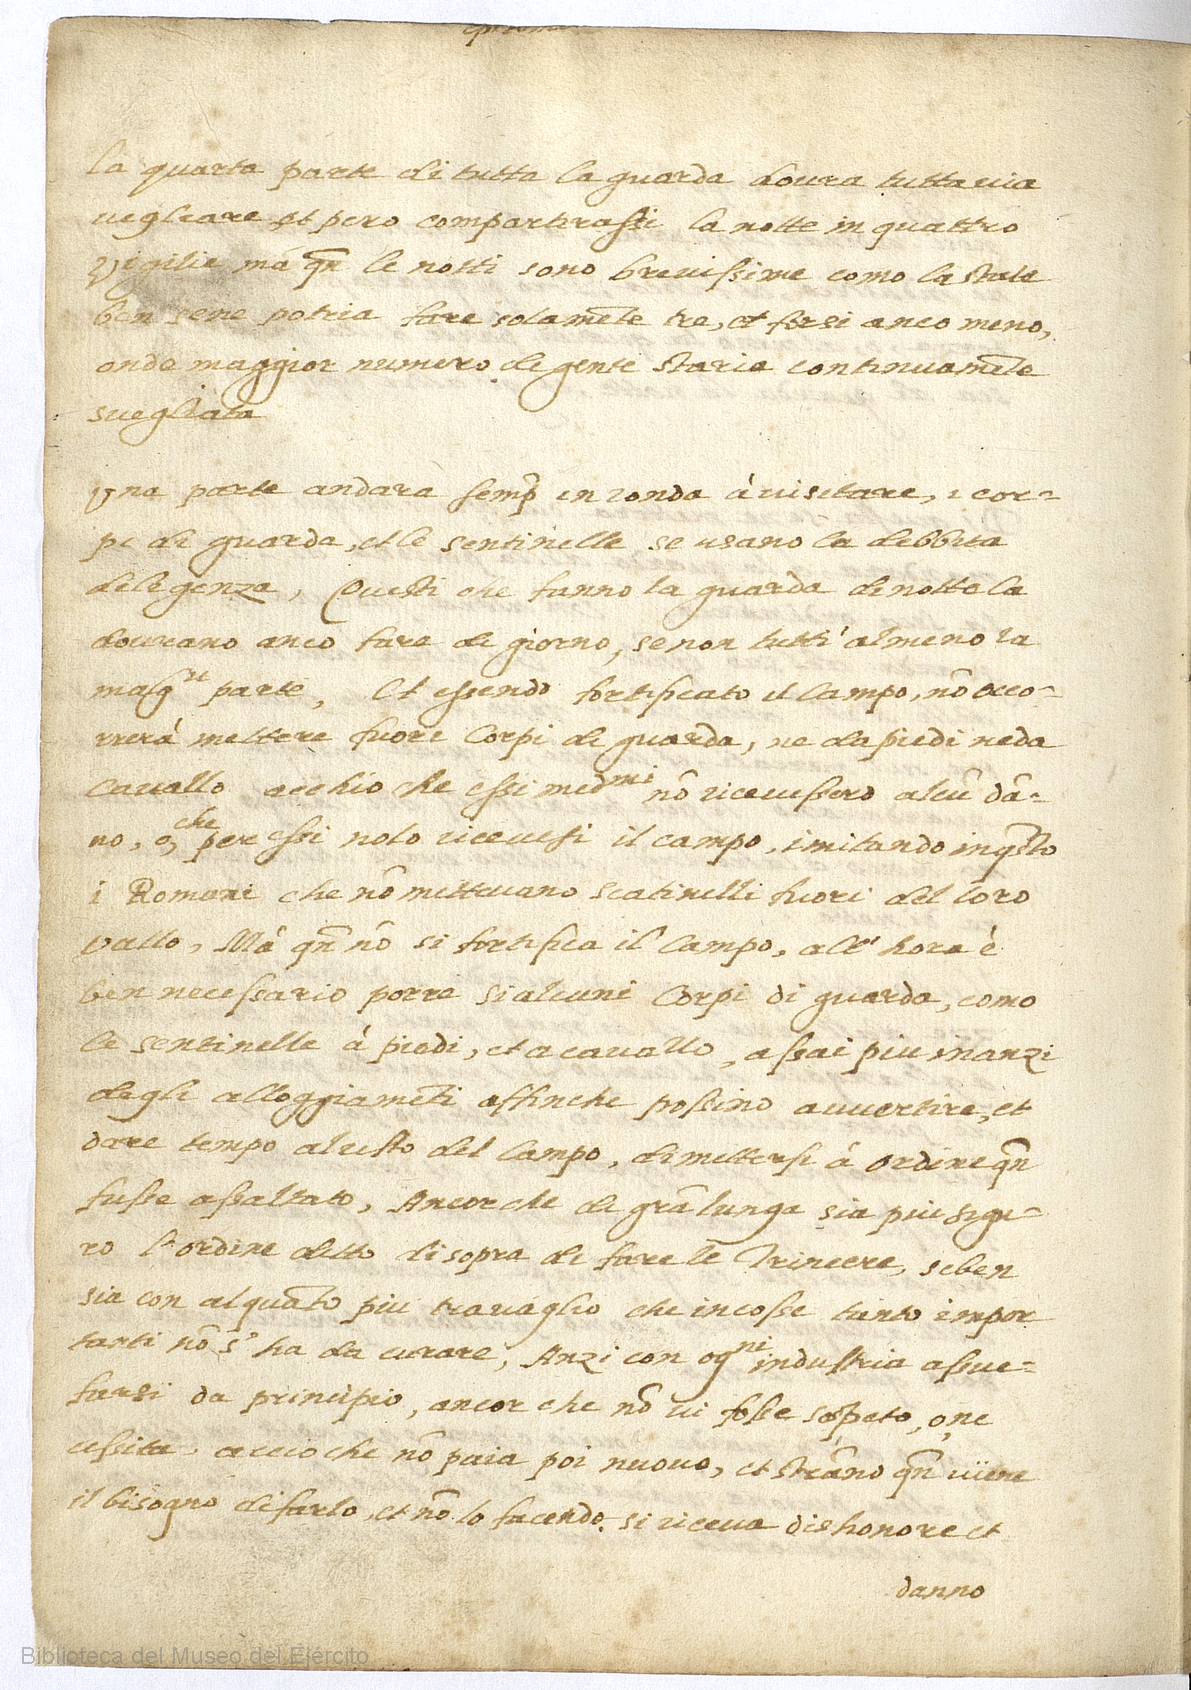 la quarta parte di tutta la guarda doura tuttauia
uegleare et pero compartirassi la notte in quattro
Vigilie má qñ le notti sono breuissime como la state
ben sene potria fare solamẽte tre, et forsi anco meno,
onde maggior numero di gente staria continuamẽte
suegliata
Vna parte andara semp̃ in ronda á uisitare, i cor=
pi di guarda, et le sentinelle se usano la debbita
deligenza, Questi che fanno la guarda di notte la
doureano anco fare di giorno, se non tutti almeno la
magre parte, Et essendo fortificato il Campo, nõ occo=
rrerá mettere fuore Corpi di guarda, ne da piedi ne da
Cauallo acchio che essi medmi nõ riceuessero alcũ dã=
no, o, che per essi nolo riceuesi il campo, imitando in q̃sto
i Romani che nõ metteuano scatinelli fuori del loro
vallo, Má qñ nõ si fortifica il Campo, all' hora è
ben necessario porre si alcuni Corpi di guarda, como
le sentinelle á piedi, et a cauallo, assai piu inanzi
degli alloggiamẽti affinche possino auuertire, et
dare tempo al resto del Campo, di mettersi á ordine qñ
fusse assaltato, Ancor che di grã lunga sia piu sigu=
ro l'ordine ditto di sopra di fare le Trincere, seben
sia con alquãto piu trauaglio che in cosse tanto impor
tanti nõ s' ha da curare, Anzi con ogni industria assue=
farsi da principio, ancor che nõ ui fosse sospeto, o, ne
cessita, accio che nõ paia poi nuouo, et strãno qñ uiene
il bisogno di farlo, et nõ lo facendo, si riceua dishonore et
danno
Biblioteca del Museo del Ejército